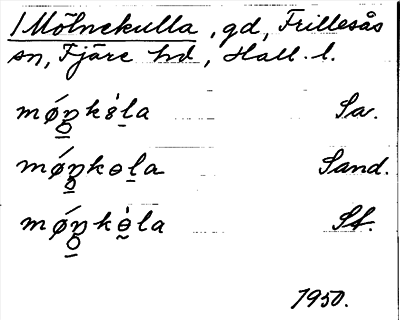 1 Mölnekulla, gd, Frillesås
sn, Fjäre hd, Hall. l.
mǿn̥kòla Sa.
mǿn̥kola Sand.
mǿn̥kòla St.
1950.